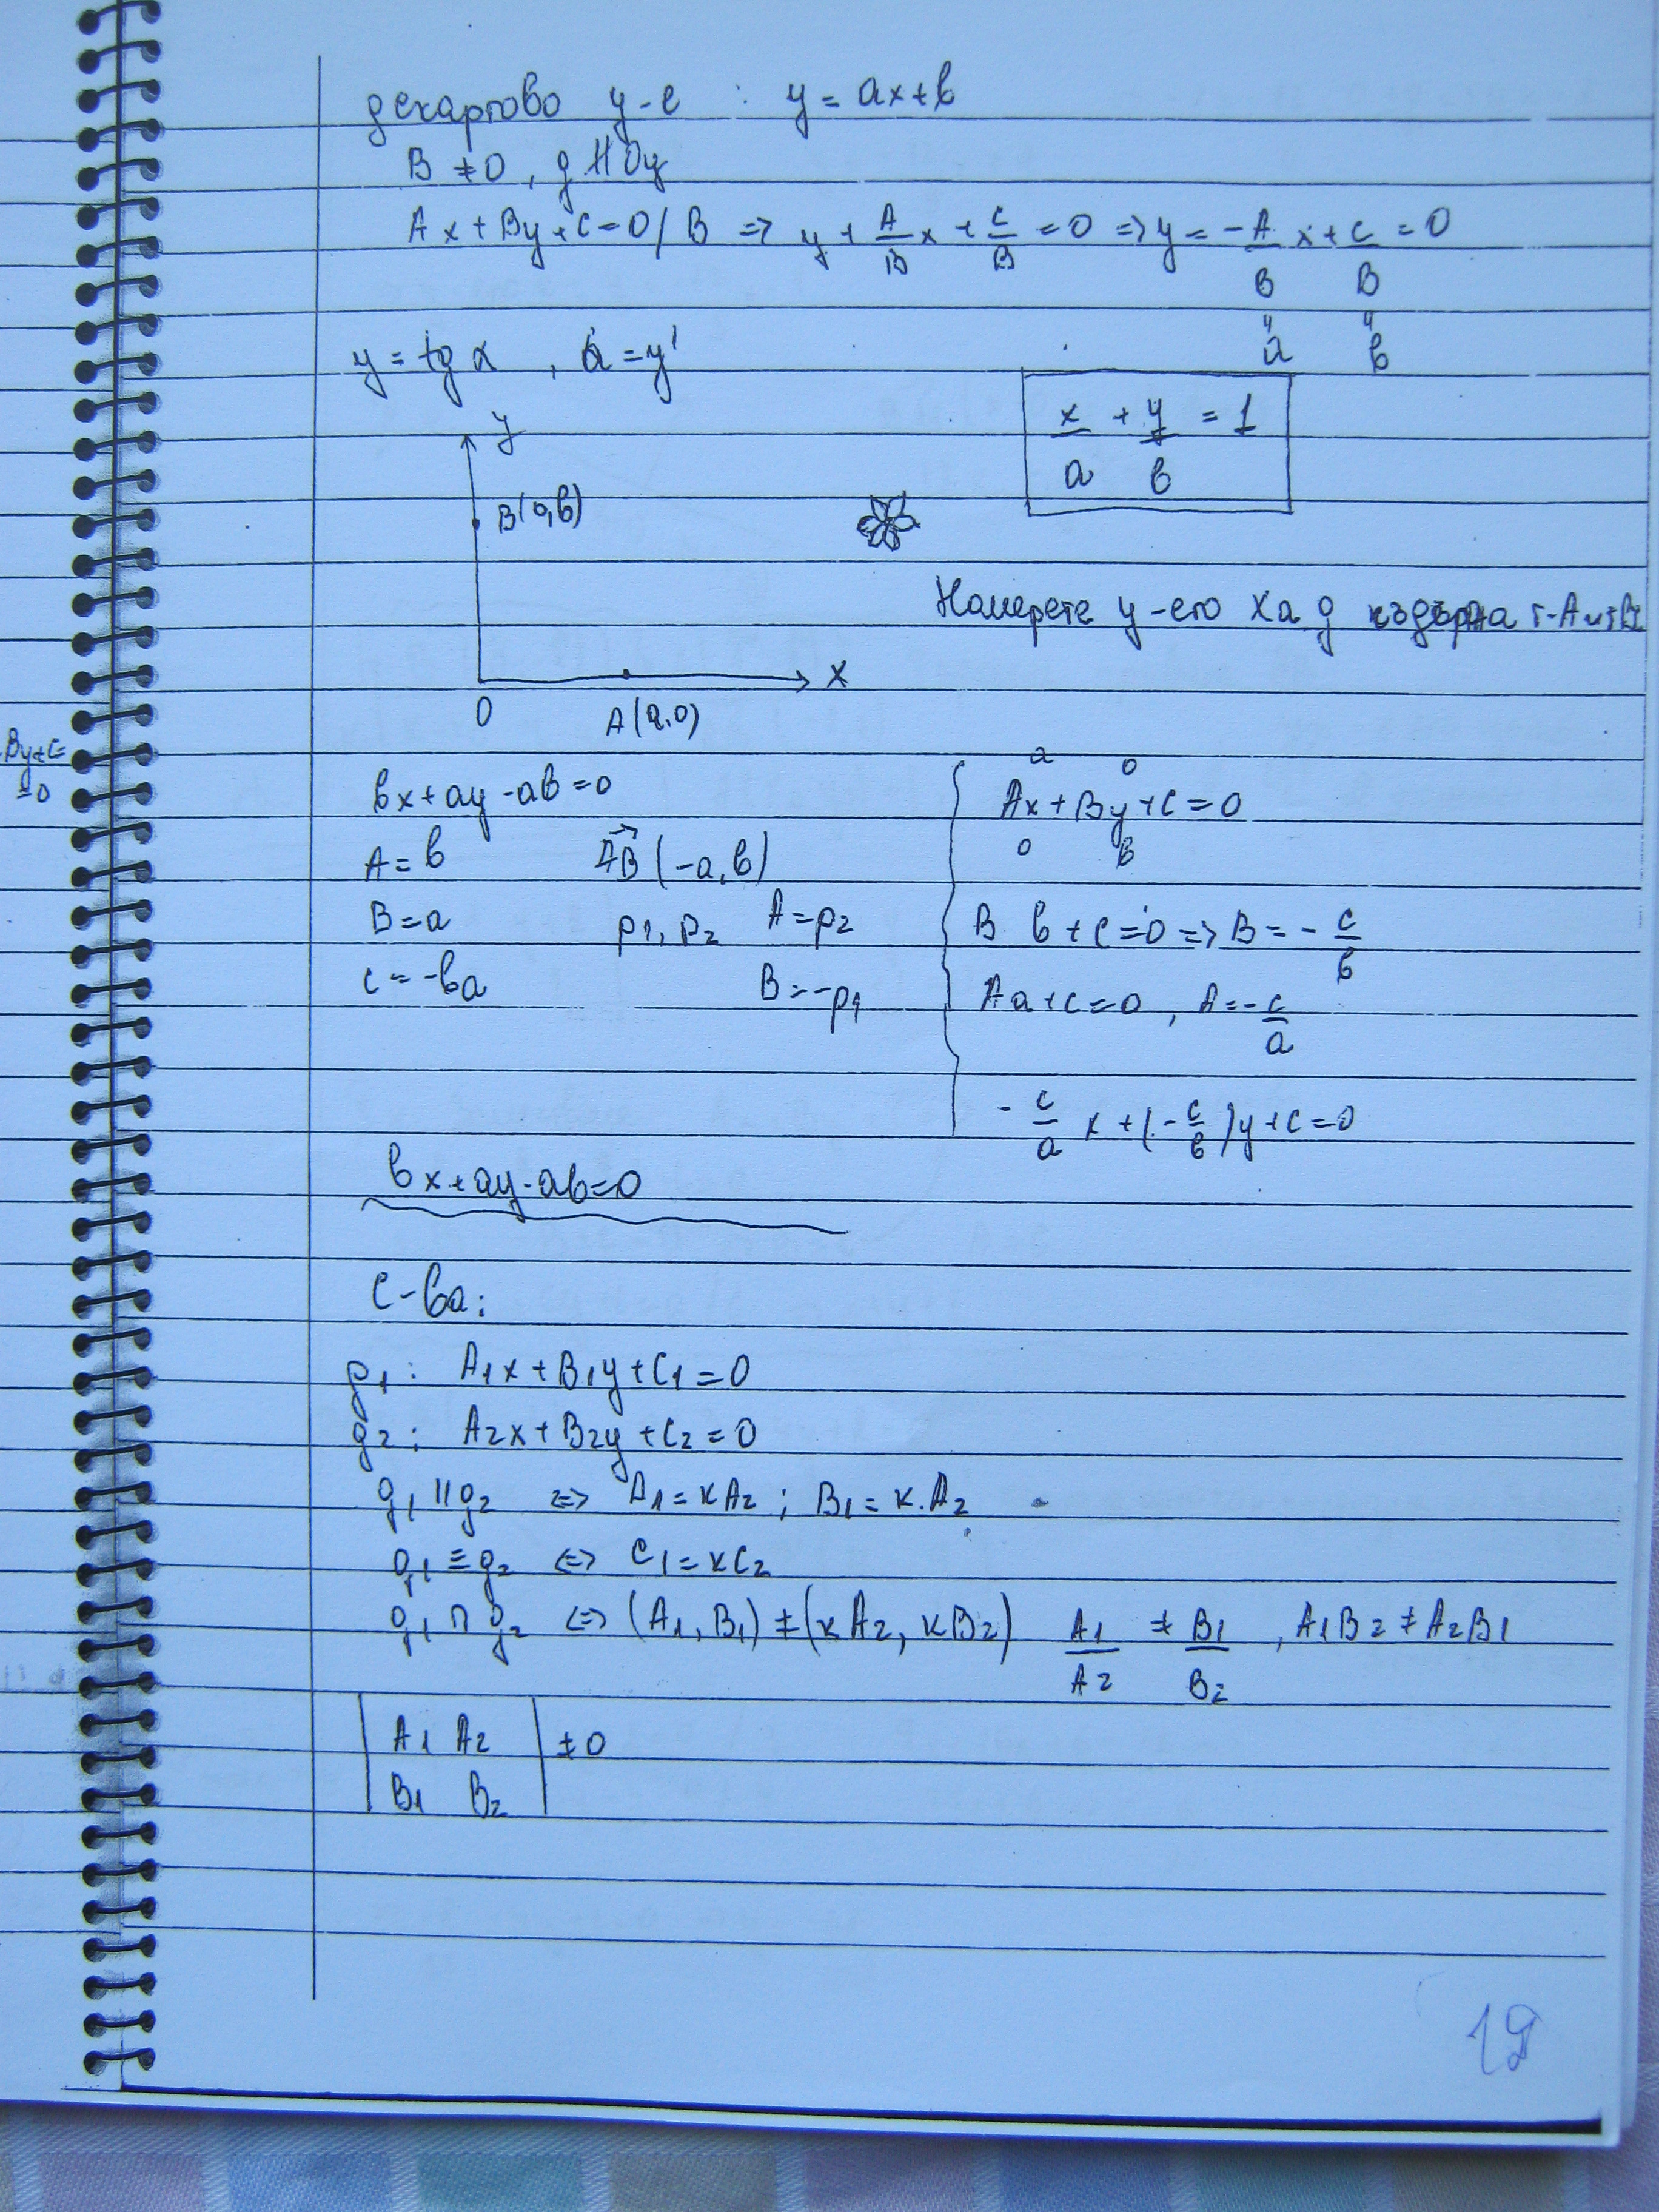 декартово у-е : y = ax+b
B ≠ 0, g ∦ Oy
Ax + By + C = 0 / B => y + A/B x + C/B = 0 => y = -A/B x + C/B = 0
" "
a b
y = tg α , a = y'
x/a + y/b = 1
y
B(0,b)
Намерете у-ето ха g съдържа т-A и т B
x
0
A(a,0)
By+C=
=0
bx+ay-ab=0
A=b AB→(-a,b)
B=a p1, p2 A=p2
C=-ba B=-p1
a 0
Ax+By+C=0
0 b
B b+C=0 => B = -C/b
Aa+C=0 , A=-C/a
-C/a x+(-C/b)y+C=0
bx+ay-ab=0
С-ва:
g1: A1x+B1y+C1=0
g2: A2x+B2y+C2=0
g1 || g2 <=> A1=kA2; B1=k.A2
g1 ≡ g2 <=> C1=kC2
g1 ∩ g2 <=> (A1, B1) ≠ (kA2, kB2) A1/A2 ≠ B1/B2 , A1B2 ≠ A2B1
| A1 A2 | ≠ 0
| B1 B2 |